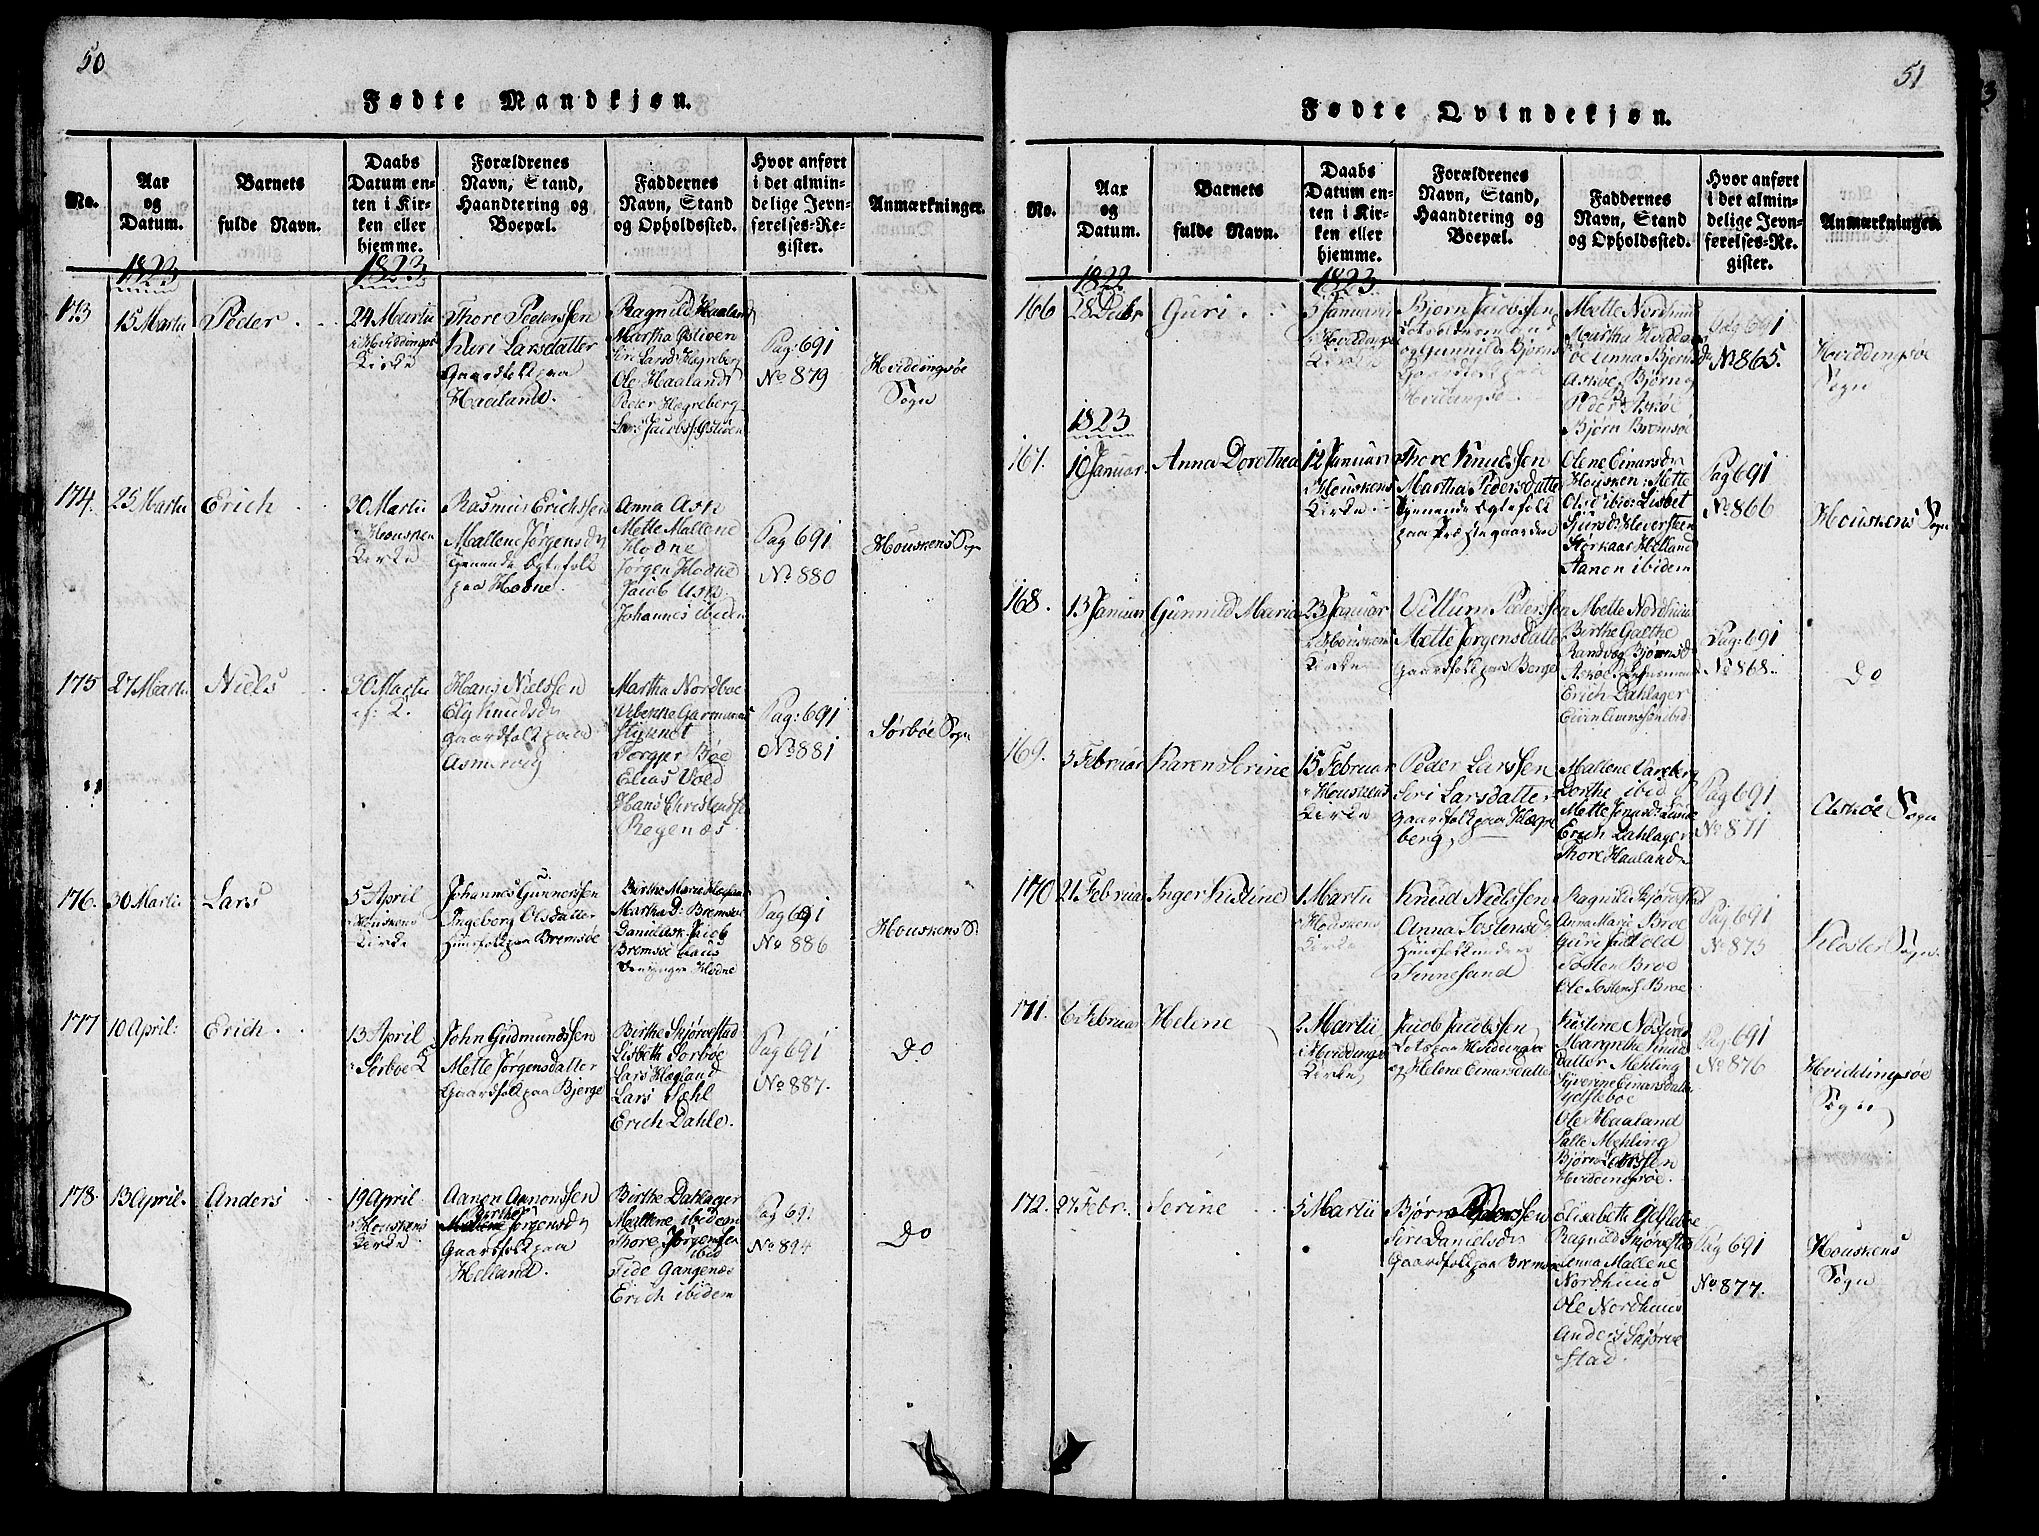 50
Fødte Mandkjøn.
No.
Aar
og
Datum.
Barnets
fulde Navn.
Daabs
Datum en-
ten i Kir-
ken eller
hjemme.
Forældrenes
Navn, Stand,
Haandtering og
Boepæl.
Faddernes
Navn, Stand
og Opholdssted.
Hvor anført
i det almin-
delige Jevn-
førelses-Re-
gister.
Anmærkninger.
1823
1823
173
15 Martii
Peder
24 Martii
i Hviddingsøe
Kirke
Thore Pedersen
Siri Larsdatter
Gaardfolk paa
Haaland.
Ragnild Haaland
Martha Østiven
Siri Larsd. Hægreberg
Ole Haaland
Peder Hægreberg
Lars Jacobs. Østiven
Pag: 691
No 879
Hviddingsøe
Sogn
174.
25 Martii
Erich
30 Martii
i Housken
Kirke
Rasmus Erichssen
Mallene Jørgensdr
Tjenende Egtefolk
paa Hodne
Anna Ask
Mette Mallene
Hodne
Jørgen Hodne
Jacob Ask
Johannes ibidem
Pag 691
No 880
Houskens Sogn
175
27 Martii
Niels
30 Martii
Hans Nielssen
Eli Knudsdr
Gaardfolk paa
Asmervig
Martha Nordboe
Torger Bøe
Elias Vold
Hans Christensen
Regenæs
Pag: 691
No 881
Sørbøe Sogn
176.
30 Martii
Lars
5 April
i Houskens
Kirke
Johannes Gunnersen
Ingeborg Olsdatter
Huusfolk paa Bremsøe
Birthe Marie Hægland
Martha D: Bremsøe
Daniel Ask Jacob
Bremsøe Claus
Hodne
Pag 691
No 886
Houskens S.
177
10 April:
Erich
13 April
i Sørboe K
John Gudmundssen
Mette Jørgensdatter
Gaardfolk paa Bjerge
Birthe Skjørvestad
Lisbeth Sørbøe
Lars Hægland
Lars Dahl
Erich Dahle.
Pag 691
No 887.
Do
178.
13 April.
Anders
19 April
i Houskens
Kirke
Aanen Aanonssen
Berthe
Jørgensdr
Gaardfolk paa
Helland.
Birthe Dahlager
Mallene ibidem
Thore Jørgensen
ibid
Tide Gangenæs
Erich ibidem
Pag 691
No 894
Do
51
Fødte Qvindekjøn.
No.
Aar
og
Datum.
Barnets
fulde Navn.
Daabs
Datum en-
ten i Kir-
ken eller
hjemme.
Forældrenes
Navn, Stand,
Haandtering og
Boepæl.
Faddernes
Navn, Stand
og Opholdssted.
Hvor anført
i det almin-
delige Jevn-
førelses-Re.
gister.
Anmærkninger.
1822
1823
166
28 Debr
Guri
5 Januarii
i Hviddingsøe
Kirke
Bjørn Jacobsen
og Gunnild Bjørnsdr
Gaardfolk paa
Hvidingsø
Mette Nordhuus
Martha Hvidding
søe Anna Bjørnsdr
Askøe Bjørn og
Peder Askøe
Bjørn Bremsøe
Pag 691
No 865.
Hviddingsøe
Sogn
1823
167.
10 Januar
Anna Dorothea
12 Januarii
i Houskens
Kirke
Thore Knudssen
Martha Pedersdatter
Tjenende Egtefolk
paa Præstegaarden
Olene Einarsdr
Housken: Mette
Olsd ibid: Lisbet
Størkaas Helland
Aanon ibidem
Pag 691
No 866
Houskens Sogn
168.
13 Januar
Gunnild Maria
23 Januar
i Houskens
Kirke
Villum Pedersen
Mette Jørgensdatter
Gaardfolk paa Berge
Mette Nordhuus
Birthe Galthe
Randvæg Bjørnsd
Erich Dahlager
Pag: 691
No 868.
Do
169.
3 Februar
Karen Serine
15 Februar
i Houskens
Kirke
Peder Larssen
Seri Larsdatter
Gaardfolk paa Hægre
berg
Mallene Vareberg
Dorthe ibid
Mette Jensd: Lunde
Erich Dahlager
Thore Haaland
Pag 691
No 871
Askøe Sogn
170
21 Februar
Inger Kistine
1 Martii
i Houskens
Kirke
Knud Nielssen
Anna Tostensdr
Huusfolk under
Finnesand
Ragnild Skjørvestad
Anna Marie Broe
Guri Vold
Tosten Broe
Ole Tostens. Broe
Pag 691
No 875
Kloster Sogn.
171.
6 Februar
Helene
2 Martii
i Hviddingsøe
Kirke
Jacob Jacobssen
Lots paa Hviddingsøe
og Helene Einarsdatter
Kistine Nøstvæd
Marythe Knuds
datter Mehling
Syverine Einarsdatter
Ydstebøe
Ole Haaland
Palle Mehling
Bjørn Larssen
Hviddingsøe.
Pag. 691
No 876
Hviddingsøe
Sogn
172.
27 Febr.
Serine
5 Martii
Bjørn Pederssen
Siri Danielsdr
Gaardfolk paa Bremsøe
Elisabeth Ydstebøe
Ragnild Skjørvestad
Anna Mallene
Nordhuus
Ole Nordhuus
Anders Skjørve
stad.
Pag 691
No 877.
Houskens
Sogn